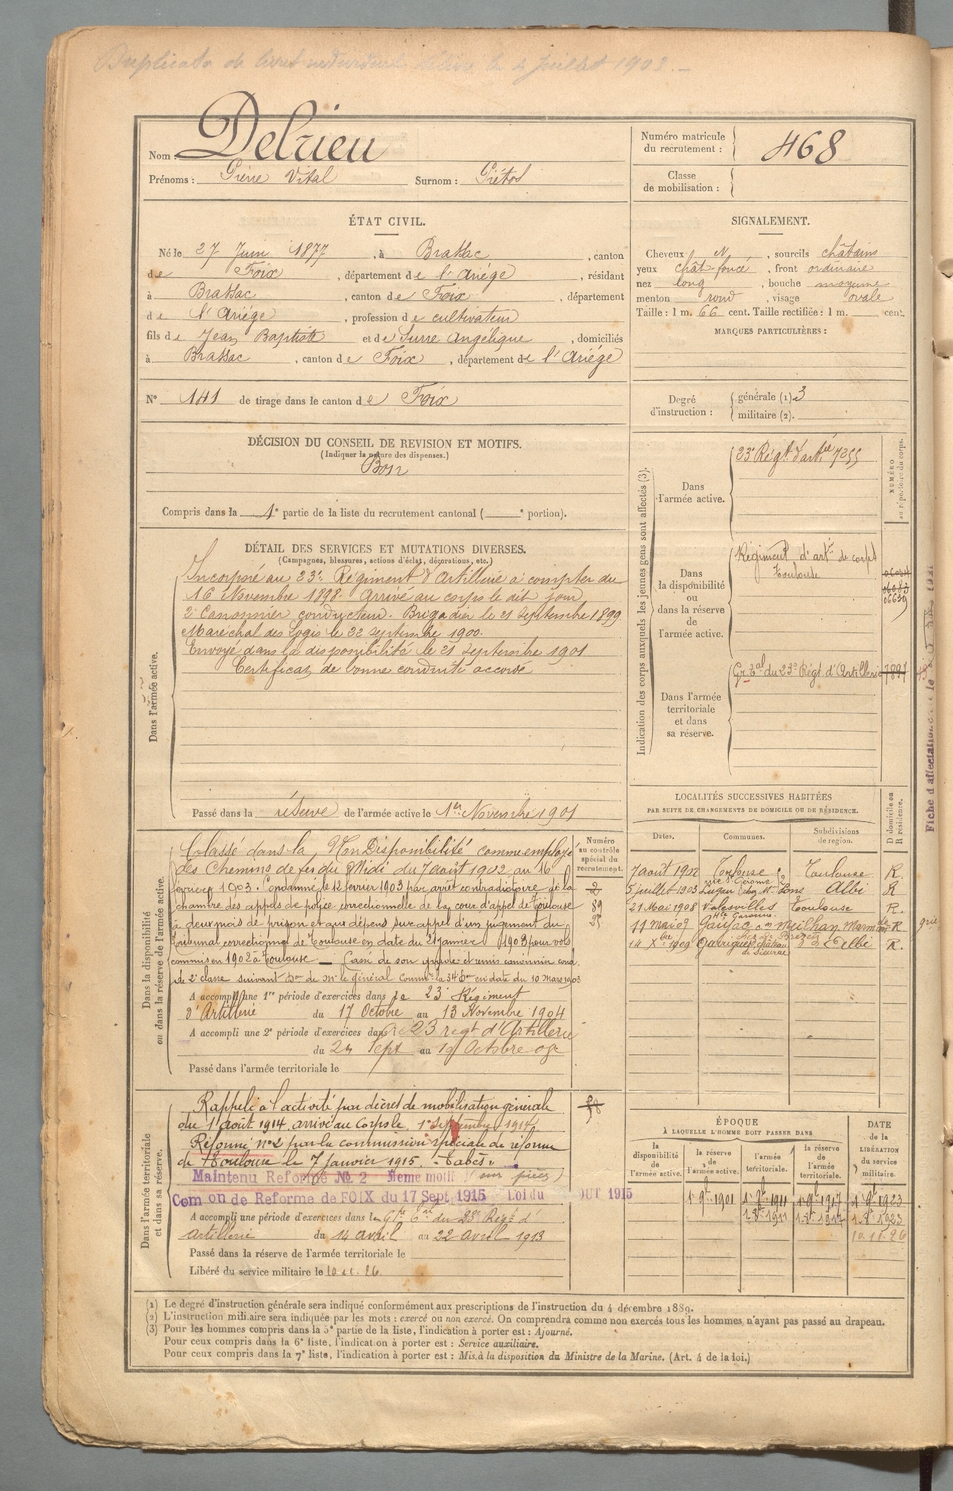 Duplicata de livret individuel délivré le 4 juillet 1903.-
Nom Delrieu
Prénoms : Pierre Vital Surnom : Piétot
Numéro matricule du recrutement : 468
Classe de mobilisation :
ÉTAT CIVIL.
Né le 27 Juin 1877, à Brassac, canton
de Foix, département de l'Ariége, résidant
à Brassac, canton de Foix, département
de l'Ariége, profession de cultivateur
fils de Jean Baptiste et de Surre Angélique, domiciliés
à Brassac, canton de Foix, département de l'Ariége
N° 141 de tirage dans le canton de Foix
SIGNALEMENT.
Cheveux N, sourcils châtains
yeux chât foncé, front ordinaire
nez long, bouche moyenne
menton rond, visage ovale
Taille : 1 m. 66 cent. Taille rectifiée : 1 m. cent.
MARQUES PARTICULIÈRES :
Degré d'instruction : générale (1). 3
militaire (2).
DÉCISION DU CONSEIL DE REVISION ET MOTIFS.
(Indiquer la nature des dispenses.)
Bon
Compris dans la 1e partie de la liste du recrutement cantonal ( e portion).
DÉTAIL DES SERVICES ET MUTATIONS DIVERSES.
(Campagnes, blessures, actions d'éclat, décorations, etc.)
Dans l'armée active.
Incorporé au 23e Régiment d'Artillerie à compter du
16 Novembre 1898. Arrivé au corps le dit jour,
2e Canonnier conducteur. Brigadier le 21 Septembre 1899
Maréchal des Logis le 22 septembre 1900.
Envoyé dans la disponibilité le 21 septembre 1901
Certificat de bonne conduite accordé
Passé dans la réserve de l'armée active le 1er Novembre 1901
Indication des corps auxquels les jeunes gens sont affectés (3).
NUMÉRO au répertoire du corps.
Dans l'armée active.
23e Régt d'artie 7255
Dans la disponibilité ou dans la réserve de l'armée active.
Régiment d'artie de corps
Toulouse
Dans l'armée territoriale et dans sa réserve.
Gr. tal du 23e Régt d'Artillerie
Fiche d'affectation
Dans la disponibilité ou dans la réserve de l'armée active.
Numéro au contrôle spécial du recrutement.
Classé dans la Non Disponibilité comme employé
des Chemins de fer du Midi du 7 août 1902 au 16
février 1903. Condamné le 12 février 1903 par arrêt contradictoire de la
chambre des appels de police correctionnelle de la cour d'appel de Toulouse
à deux mois de prison et aux dépens sur appel d'un jugement du
tribunal correctionnel de Toulouse en date du 21 janvier 1903 pour vol
commis en 1902 à Toulouse — Cassé de son grade et remis canonnier cond
de 2e classe suivant on de Mr le général Commt la 34 Bde en date du 10 Mars 1903
A accompli une 1re période d'exercices dans le 23e Régiment
d'Artillerie du 17 Octobre au 13 Novembre 1904
A accompli une 2e période d'exercices dans le 23 regt d'Artillerie
du 24 Sept au 19 Octobre
Passé dans l'armée territoriale le
LOCALITÉS SUCCESSIVES HABITÉES
PAR SUITE DE CHANGEMENTS DE DOMICILE OU DE RÉSIDENCE.
Dates. Communes. Subdivisions de région. D domicile ou R résidence.
7 août 1902 Toulouse Toulouse R.
5 juillet 1903 Albi R
21 Mai 1908 Toulouse R.
R
14 Xbre 1909 Albi R.
Dans l'armée territoriale et dans sa réserve.
Rappelé à l'activité par décret de mobilisation générale
du 1 août 1914 arrivé au corps le 1 septembre 1914
Réformé n°2 par la commission spéciale de réforme
de Toulouse le 7 janvier 1915. "Tabès".
Maintenu Réformé No 2 Même motif sur pièces
Comon de Reforme de FOIX du 17 Sept 1915 Loi du OUT 1915
A accompli une période d'exercices dans le du 23e Régt d'
artillerie du 14 avril au 22 avril 1913
Passé dans la réserve de l'armée territoriale le
Libéré du service militaire le 10.11.26
ÉPOQUE
À LAQUELLE L'HOMME DOIT PASSER DANS
la disponibilité de l'armée active. la réserve de l'armée active. l'armée territoriale. la réserve de l'armée territoriale.
DATE de la LIBÉRATION du service militaire.
10.11.26
(1) Le degré d'instruction générale sera indiqué conformément aux prescriptions de l'instruction du 4 décembre 1889.
(2) L'instruction militaire sera indiquée par les mots : exercé ou non exercé. On comprendra comme non exercés tous les hommes n'ayant pas passé au drapeau.
(3) Pour les hommes compris dans la 5e partie de la liste, l'indication à porter est : Ajourné.
Pour ceux compris dans la 6e liste, l'indication à porter est : Service auxiliaire.
Pour ceux compris dans la 7e liste, l'indication à porter est : Mis à la disposition du Ministre de la Marine. (Art. 4 de la loi.)